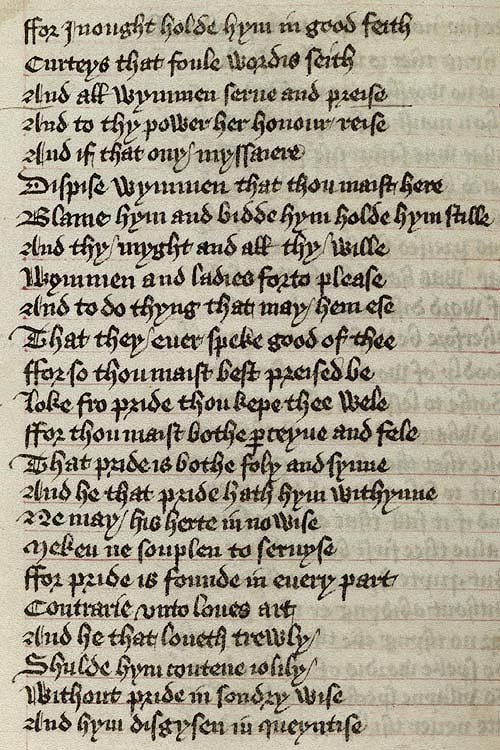 ffor I nought holde hym in good feith
Curteys that foule wordis seith
And all wymmen serue and preise
And to thy power her honour reise
And if that ony myssaiere
Dispise wymmen that thou maist here
Blame hym and bidde hym holde hym stille
And thy myght and all thy wille
Wymmen and ladies forto please
And to do thyng that may hem ese
That they euer speke good of thee
ffor so thou maist best preised be
loke fro pride thou kepe thee wele
ffor thou maist bothe ꝑceyue and fele
That pride is bothe foly and synne
And he that pride hath hym withynne
Ne may his herte in no wise
Meken ne souplen to seruyse
ffor pride is founde in euery part
Contrarie vnto loues art
And he that loueth trewly
Shulde hym contene iolily
Without pride in sondry wise
And hym disgysen in queyntise